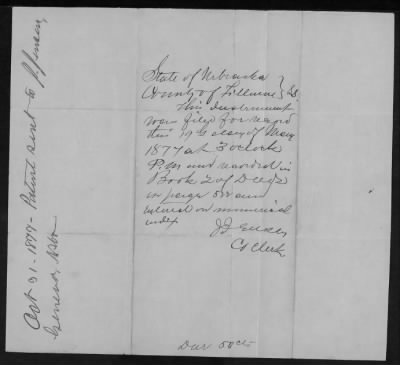 State of Nebraska
County of Fillmore } SS.
This Instrument
was filed for record
this 19th day of May
1877 at 3 oclock
P.M. and recorded in
Book 2 of Deeds
on page 522 and
entered on numerical
index
J. J. 
Co Clerk
Due 50 cts
Oct 31 - 1879 - Patent sent to J. Jensen
Geneva, Nebr